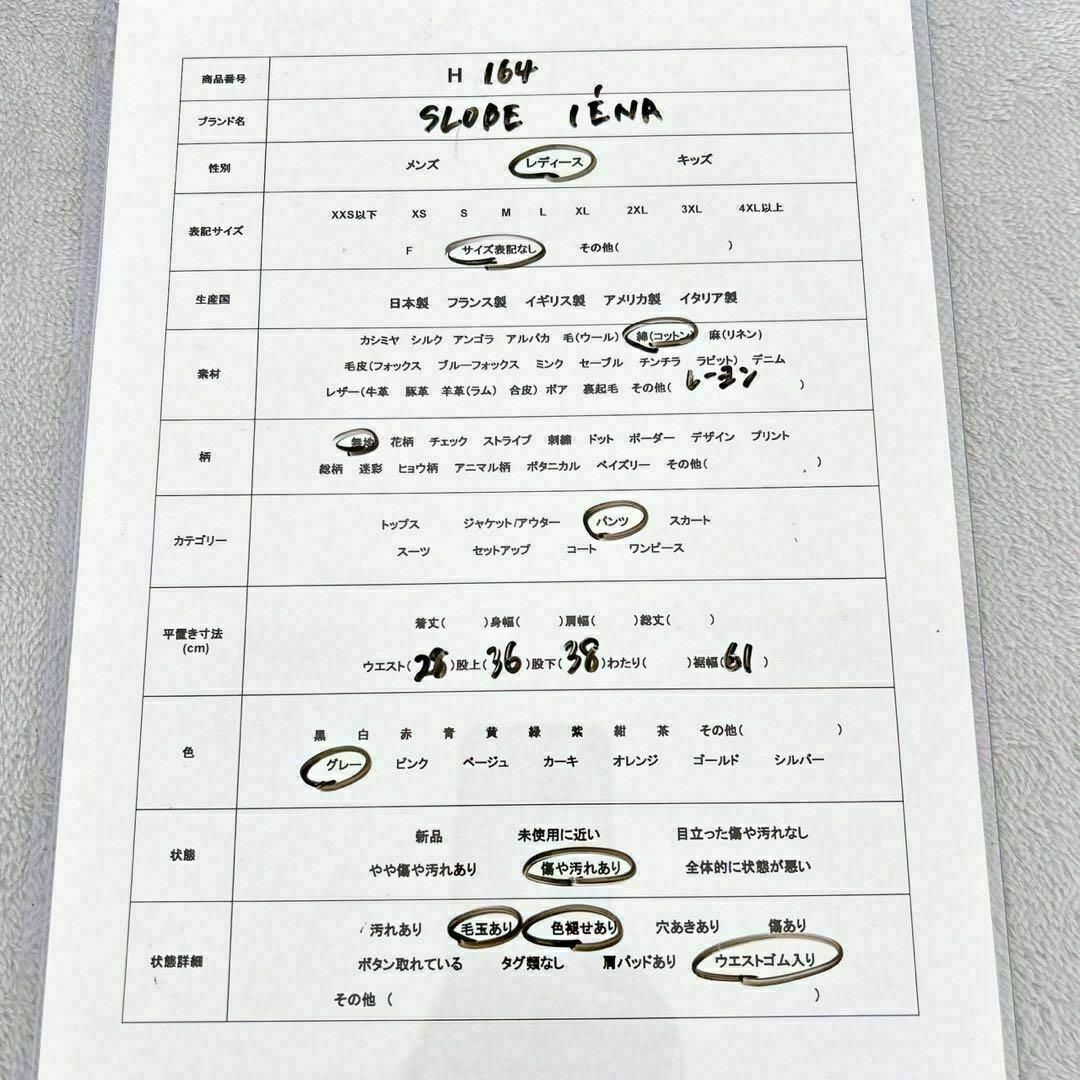 商品番号 H 164
ブランド名 SLOBE IÉNA
性別 メンズ レディース キッズ
XXS以下 XS S M L XL 2XL 3XL 4XL以上
表記サイズ
F サイズ表記なし その他( )
生産国 日本製 フランス製 イギリス製 アメリカ製 イタリア製
カシミヤ シルク アンゴラ アルパカ 毛(ウール) 綿(コットン) 麻(リネン)
毛皮(フォックス ブルーフォックス ミンク セーブル チンチラ ラビット) デニム
素材
レザー(牛革 豚革 羊革(ラム) 合皮) ボア 裏起毛 その他( レーヨン )
無地 花柄 チェック ストライプ 刺繍 ドット ボーダー デザイン プリント
柄
総柄 迷彩 ヒョウ柄 アニマル柄 ボタニカル ペイズリー その他( )
トップス ジャケット/アウター パンツ スカート
カテゴリー
スーツ セットアップ コート ワンピース
着丈( )身幅( )肩幅( )総丈( )
平置き寸法
(cm)
ウエスト(28)股上(36)股下(38)わたり( )裾幅(61)
黒 白 赤 青 黄 緑 紫 紺 茶 その他( )
色
グレー ピンク ベージュ カーキ オレンジ ゴールド シルバー
新品 未使用に近い 目立った傷や汚れなし
状態
やや傷や汚れあり 傷や汚れあり 全体的に状態が悪い
汚れあり 毛玉あり 色褪せあり 穴あきあり 傷あり
状態詳細
ボタン取れている タグ類なし 肩パッドあり ウエストゴム入り
その他 ( )